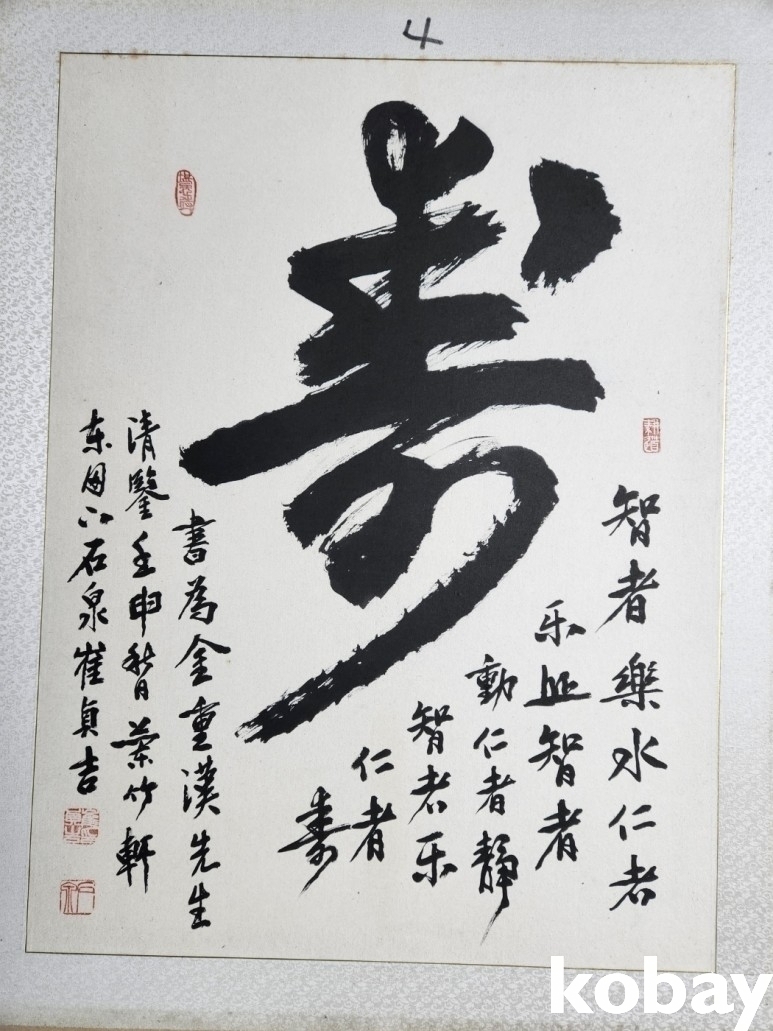 4
壽
智者樂水仁者
乐山智者
動仁者靜
智者乐
仁者
壽
書為金重漢先生
清鑒壬申暮秋月兰竹軒
东园人石泉崔貞吉
kobay